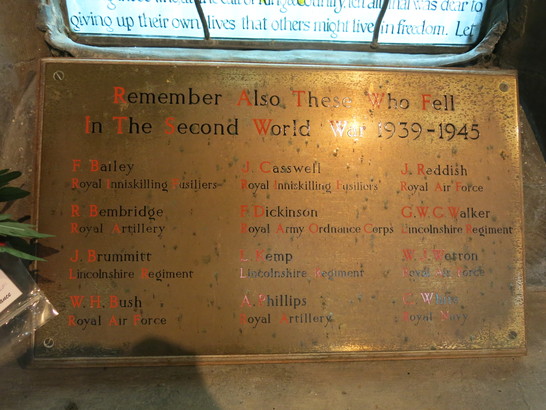 King & Country, left all that was dear to
giving up their own lives that others might live in freedom. Let
Remember Also These Who Fell
In The Second World War 1939-1945
F. Bailey
Royal Inniskilling Fusiliers
R. Bembridge
Royal Artillery
J. Brummitt
Lincolnshire Regiment
W.H. Bush
Royal Air Force
J. Casswell
Royal Inniskilling Fusiliers
F. Dickinson
Royal Army Ordnance Corps
L. Kemp
Lincolnshire Regiment
A. Phillips
Royal Artillery
J. Reddish
Royal Air Force
G.W.C. Walker
Lincolnshire Regiment
W.J. Werron
Royal Air Force
White
Royal Navy